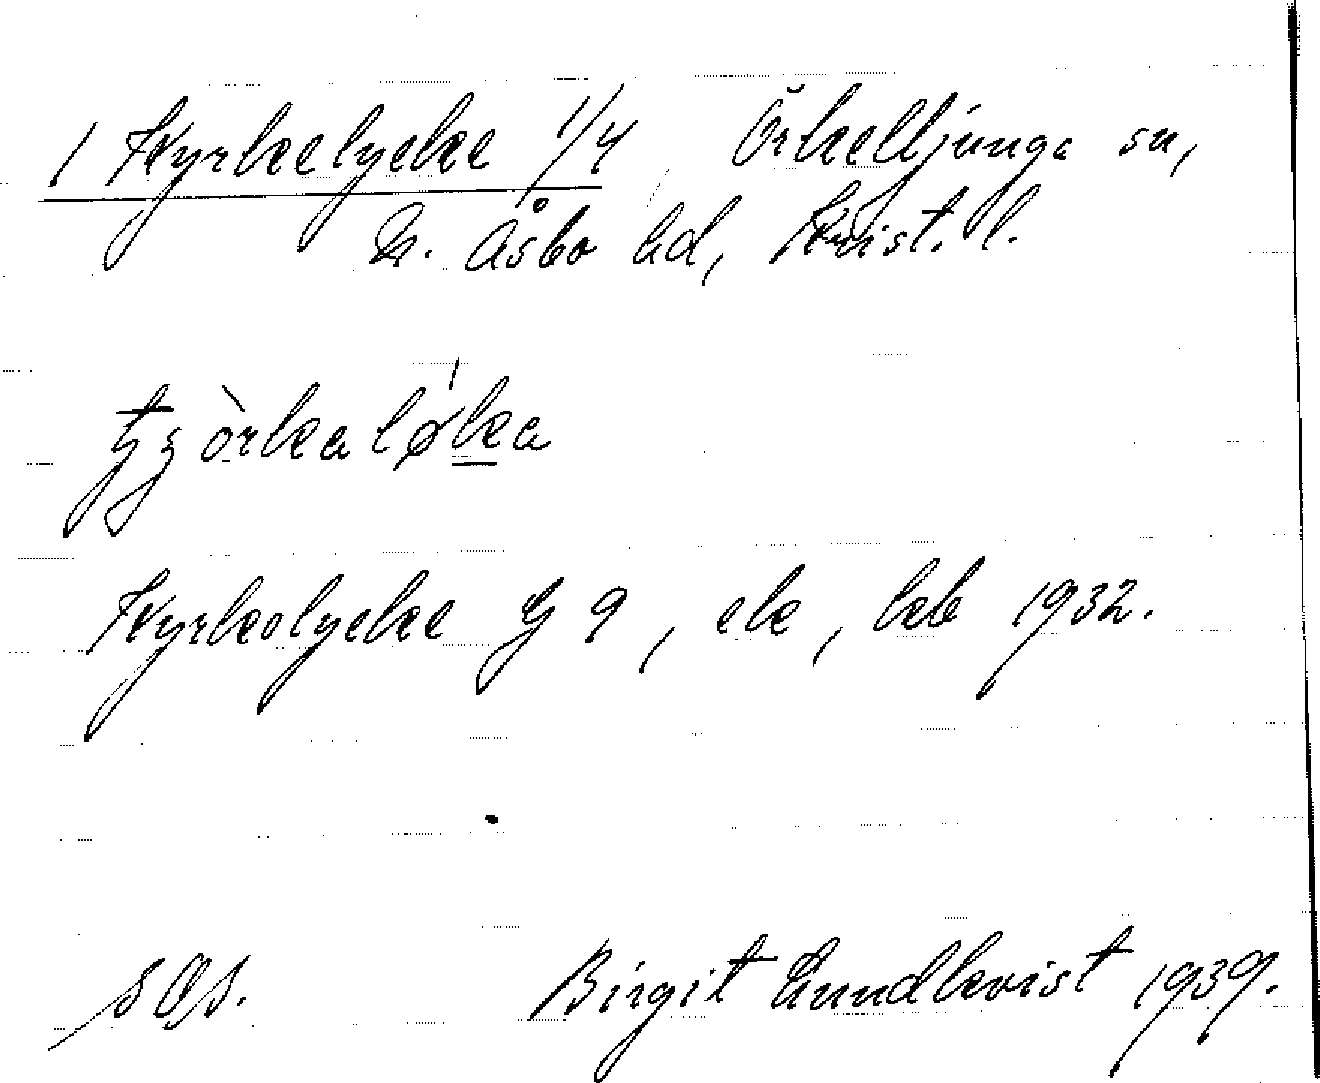 1 Kyrkelycke 1/4 Örkelljunga sn,
N. Åsbo hd, Krist. l.
Kyrkolycke G 9, ek, kb 1932.
SOS. Birgit Lundkvist 1939.